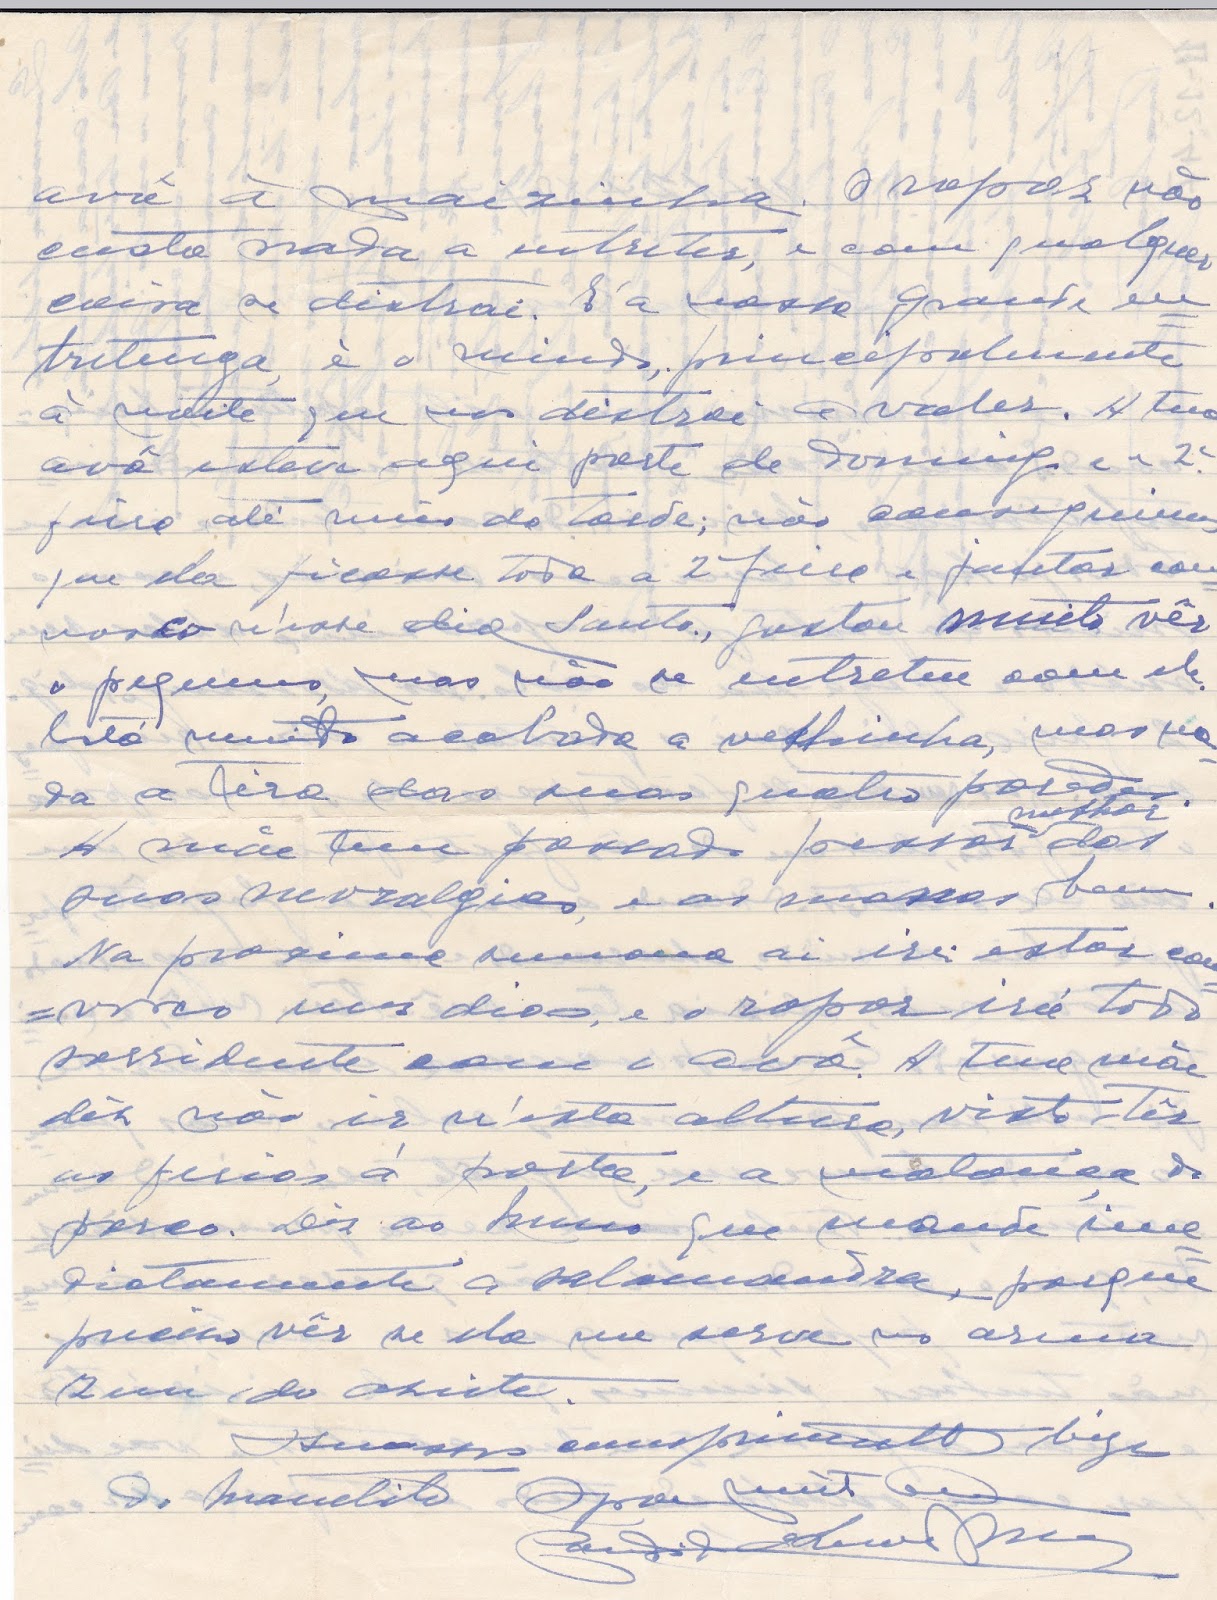 avó à mãizinha. O rapaz não
custa nada a entreter, e com qualquer
coisa se distrai. É a nossa grande en=
tretenga, é o menino, principalmente
à noite que nos distrai a valer. A tua
avó esteve aqui parte de Domingo e a 2ª
feira até meio da tarde; não conseguimos
que ela ficasse toda a 2ª feira e jantar con=
nosco n'esse dia Santo, gostou muito vêr
o pequeno, mas não se entretem com ele.
Está muito acabada a velhinha, mas na=
da a tira das suas quatro paredes.
melhor
A mãe tem passado pessoas das
suas nevralgias, e as manas bem.
Na proxima semana aí irei estar con=
=vosco uns dias, e o rapaz irá todo
sorridente com o avô. A tua mãe
diz não ir n'esta altura, visto têr
as ferias á porta, e a matança do
porco. Diz ao Nuno que mande ime=
diatamente a salamandra, porque
preciso vêr se ela me serve no arma
zem do azeite.
Nossos cumprimentos
do Manelito O pai muito